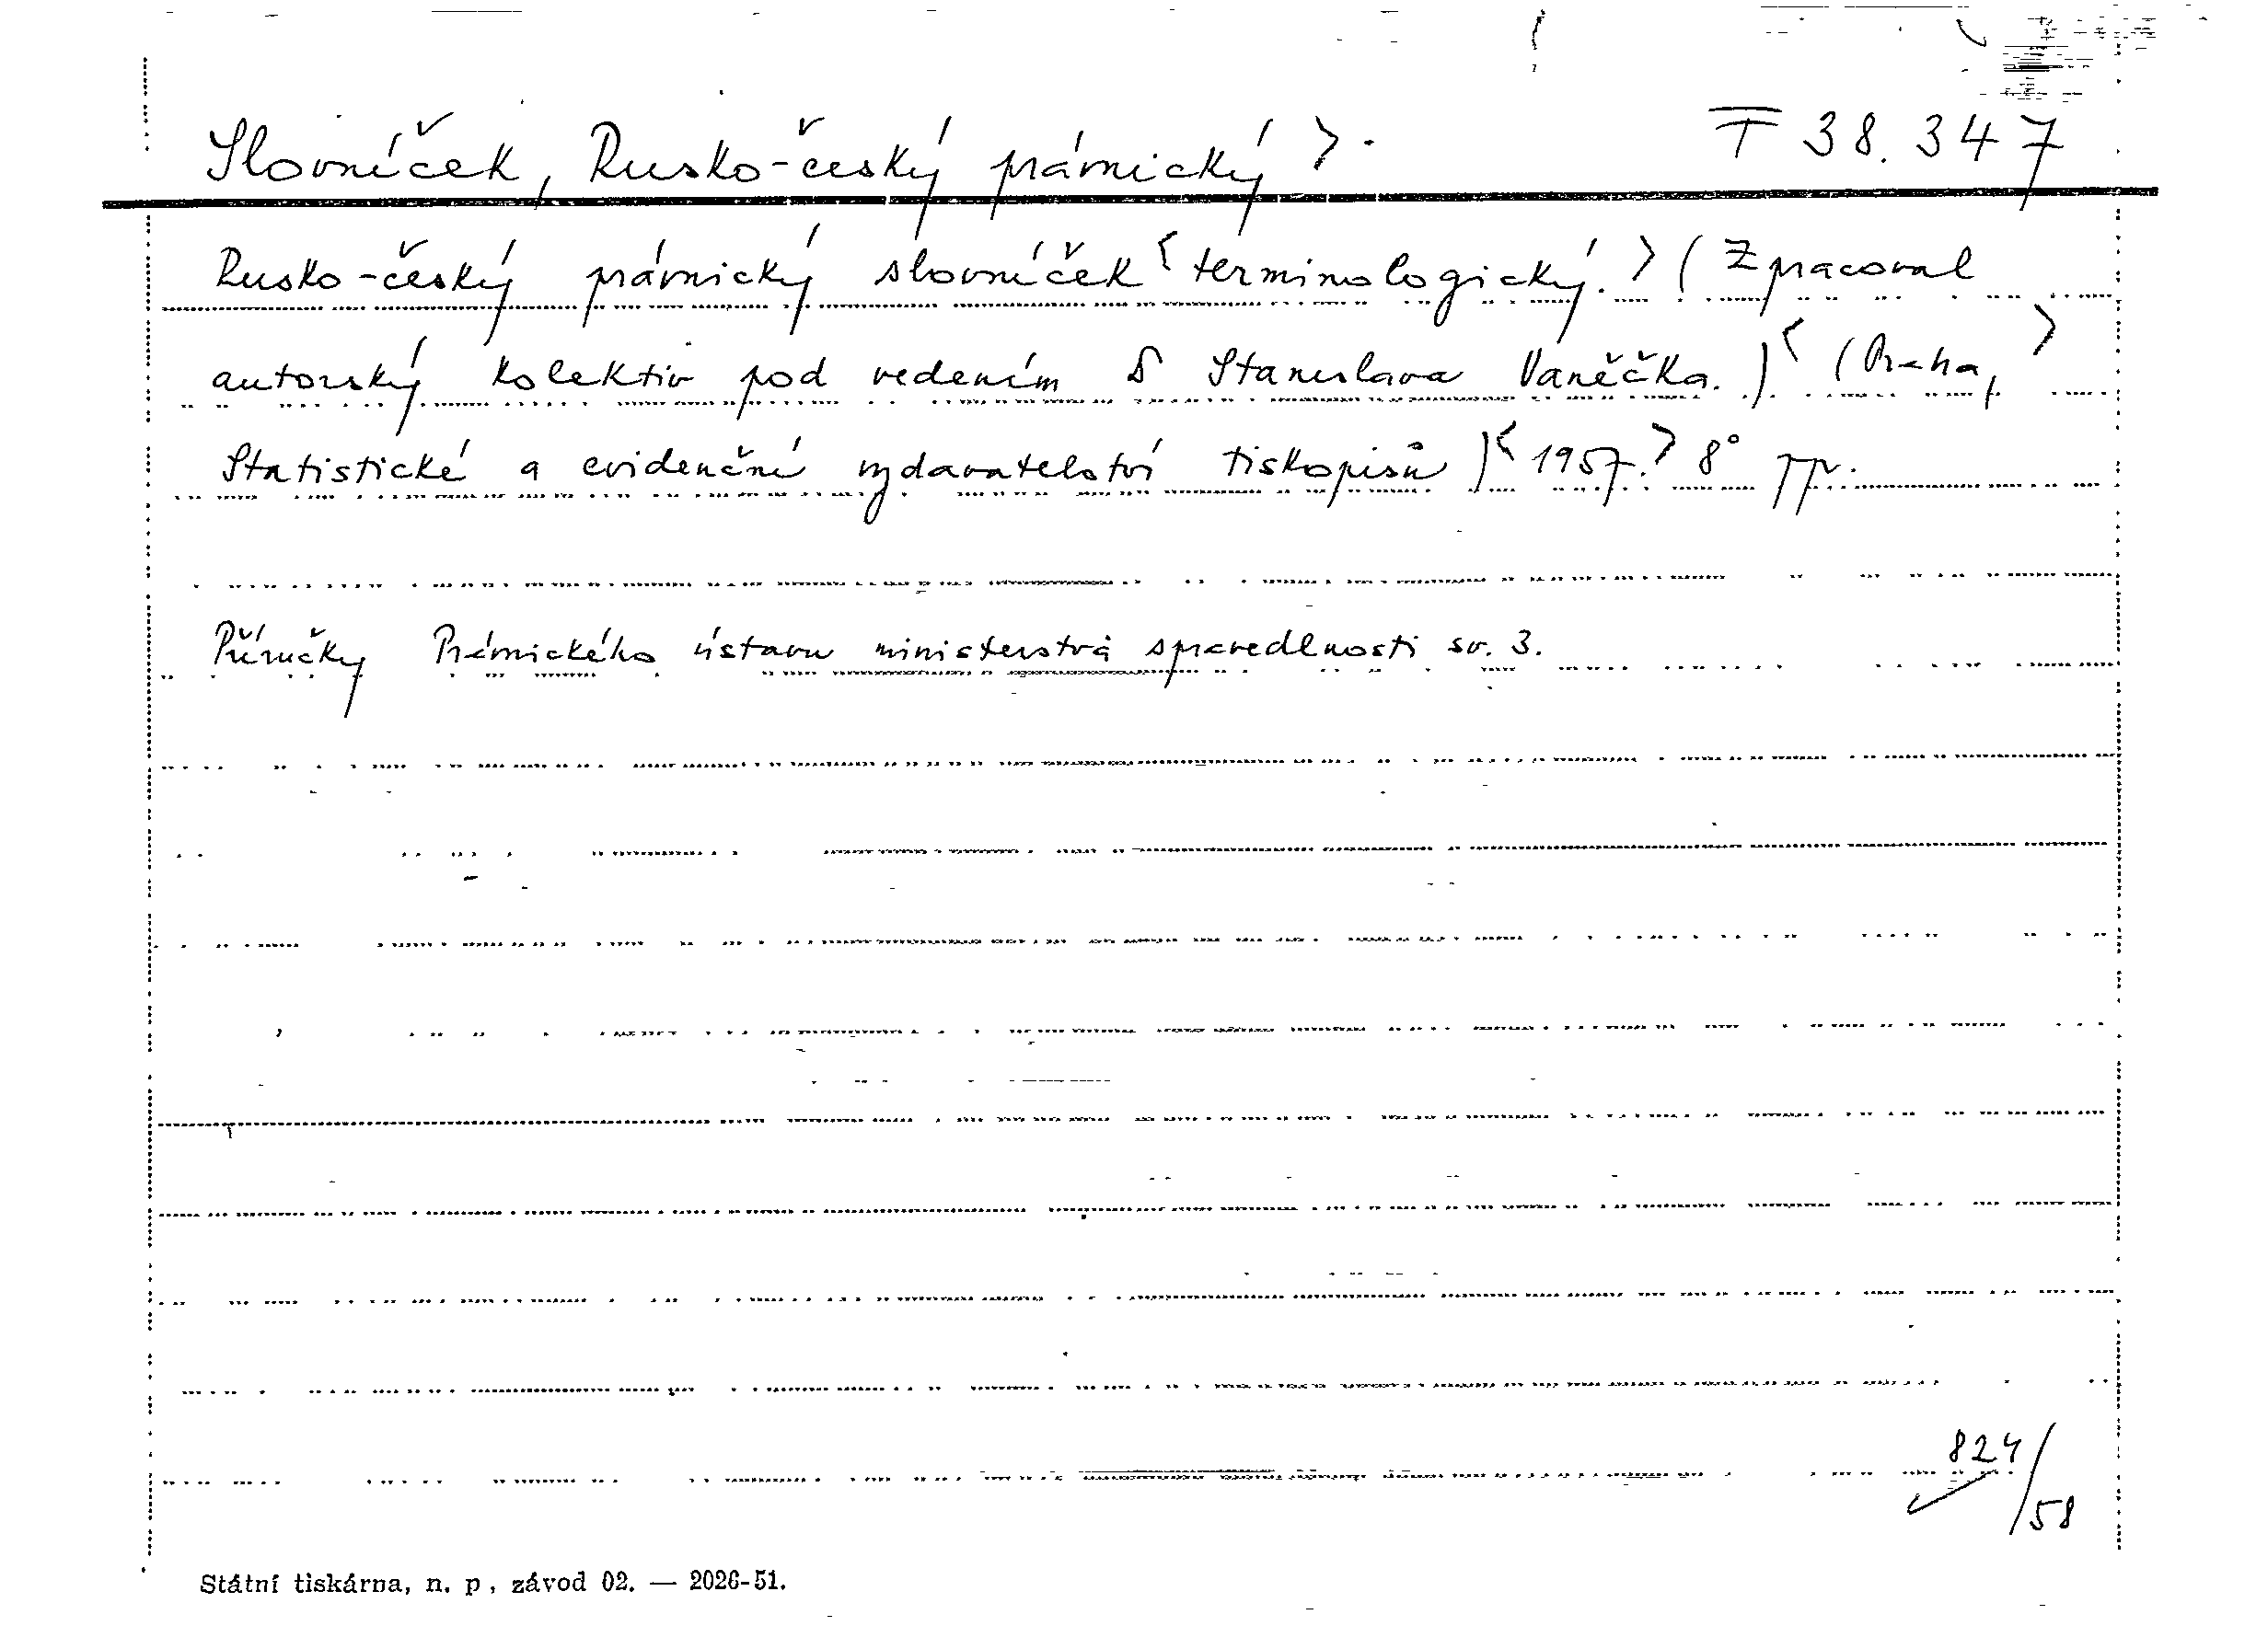 Slovníček, Rusko-český právnický > . T 38.347
Rusko-český právnický slovníček < terminologický. > ( Zpracoval
autorský kolektiv pod vedením Stanislava Vaněčka. ) < ( Praha, >
Statistické a evidenční vydavatelství tiskopisů ) < 1957. > 8° pp.
Příručky Právnického ústavu ministerstva spravedlnosti sv. 3.
824/58
Státní tiskárna, n. p., závod 02. — 2026-51.